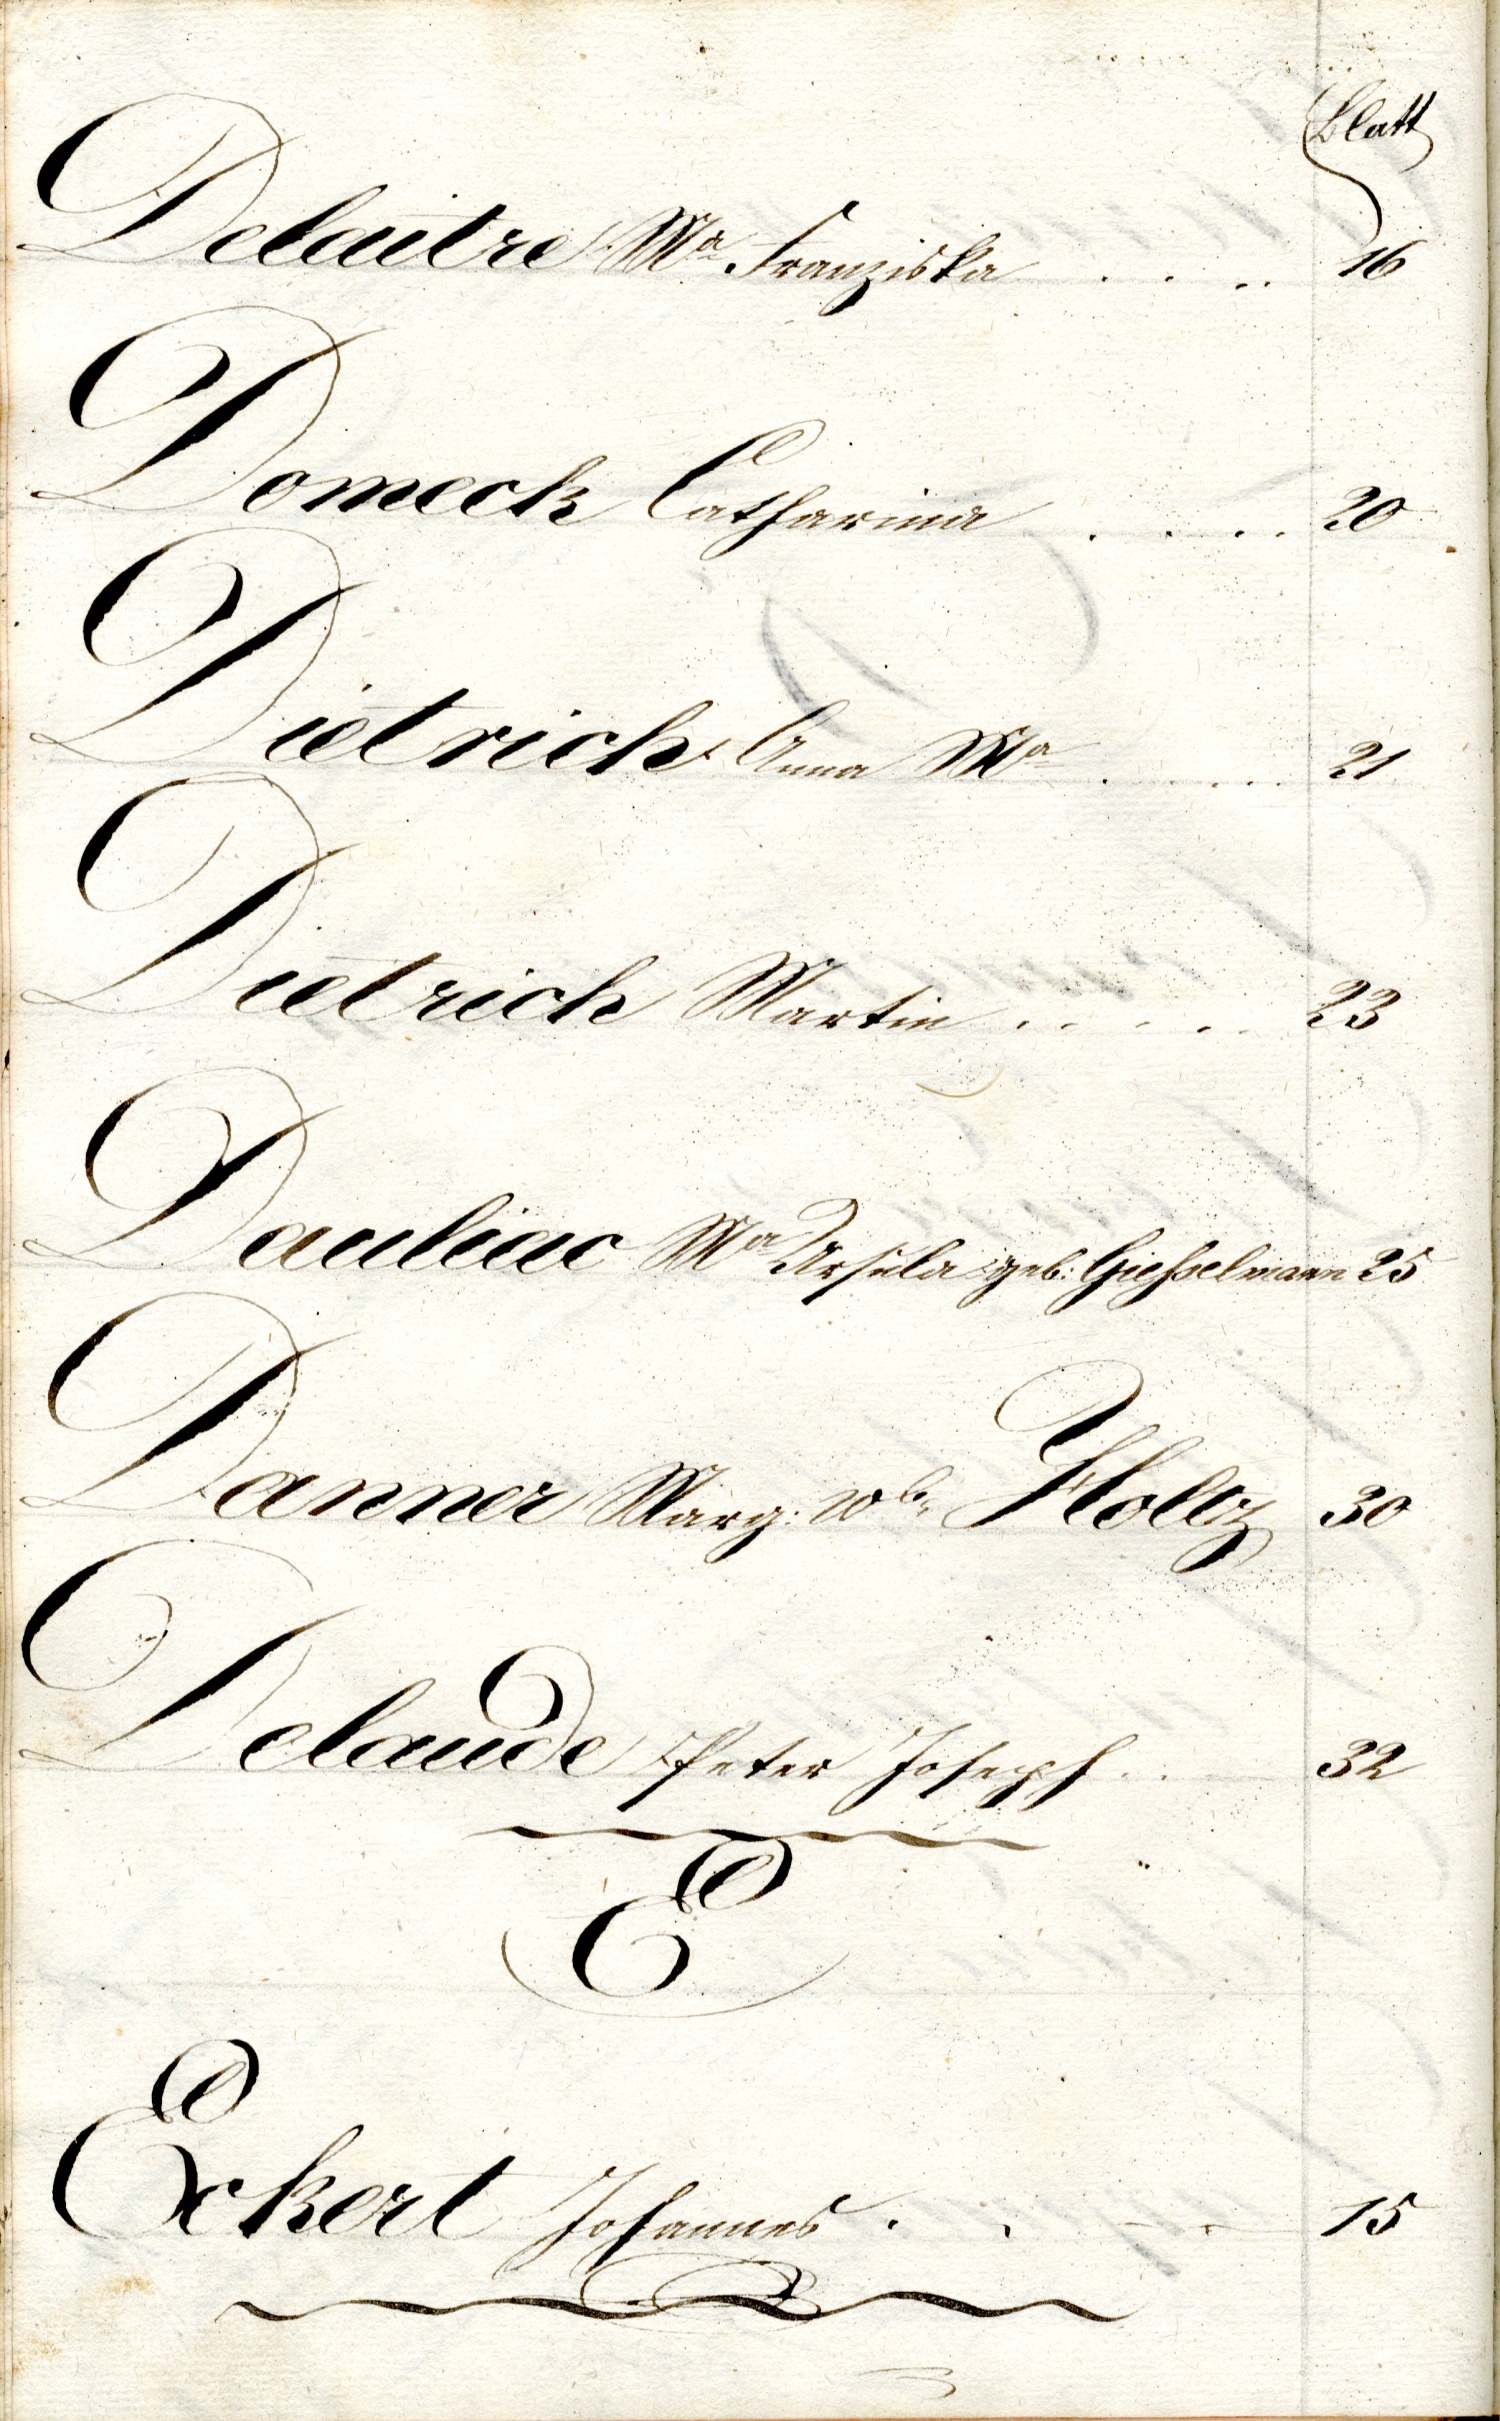 Blatt
Delaitre Ma Franziska . . . . 16
Domeck Catharina . . . . 20
Dietrich Anna Ma . . . . . 21
Dietrich Martin . . . . . 23
Dauliac Ma Ursula geb: Gießelmann 25
Danner Marg: Wb. Holtz 30
Delaude Peter Joseph . . 32
E
Eckert Johannes . . . . 15